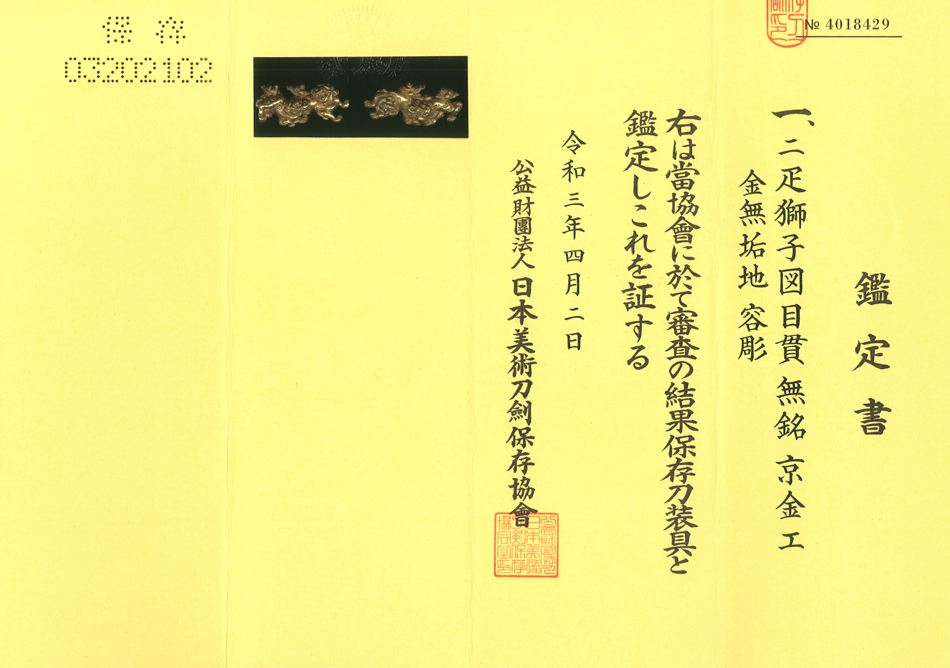 № 4018429
鑑定書
一、二疋獅子図目貫 無銘 京金工
金無垢地 容彫
右は當協會に於て審査の結果保存刀装具と
鑑定しこれを証する
令和三年四月二日
公益財團法人 日本美術刀劍保存協會
保存
03202102